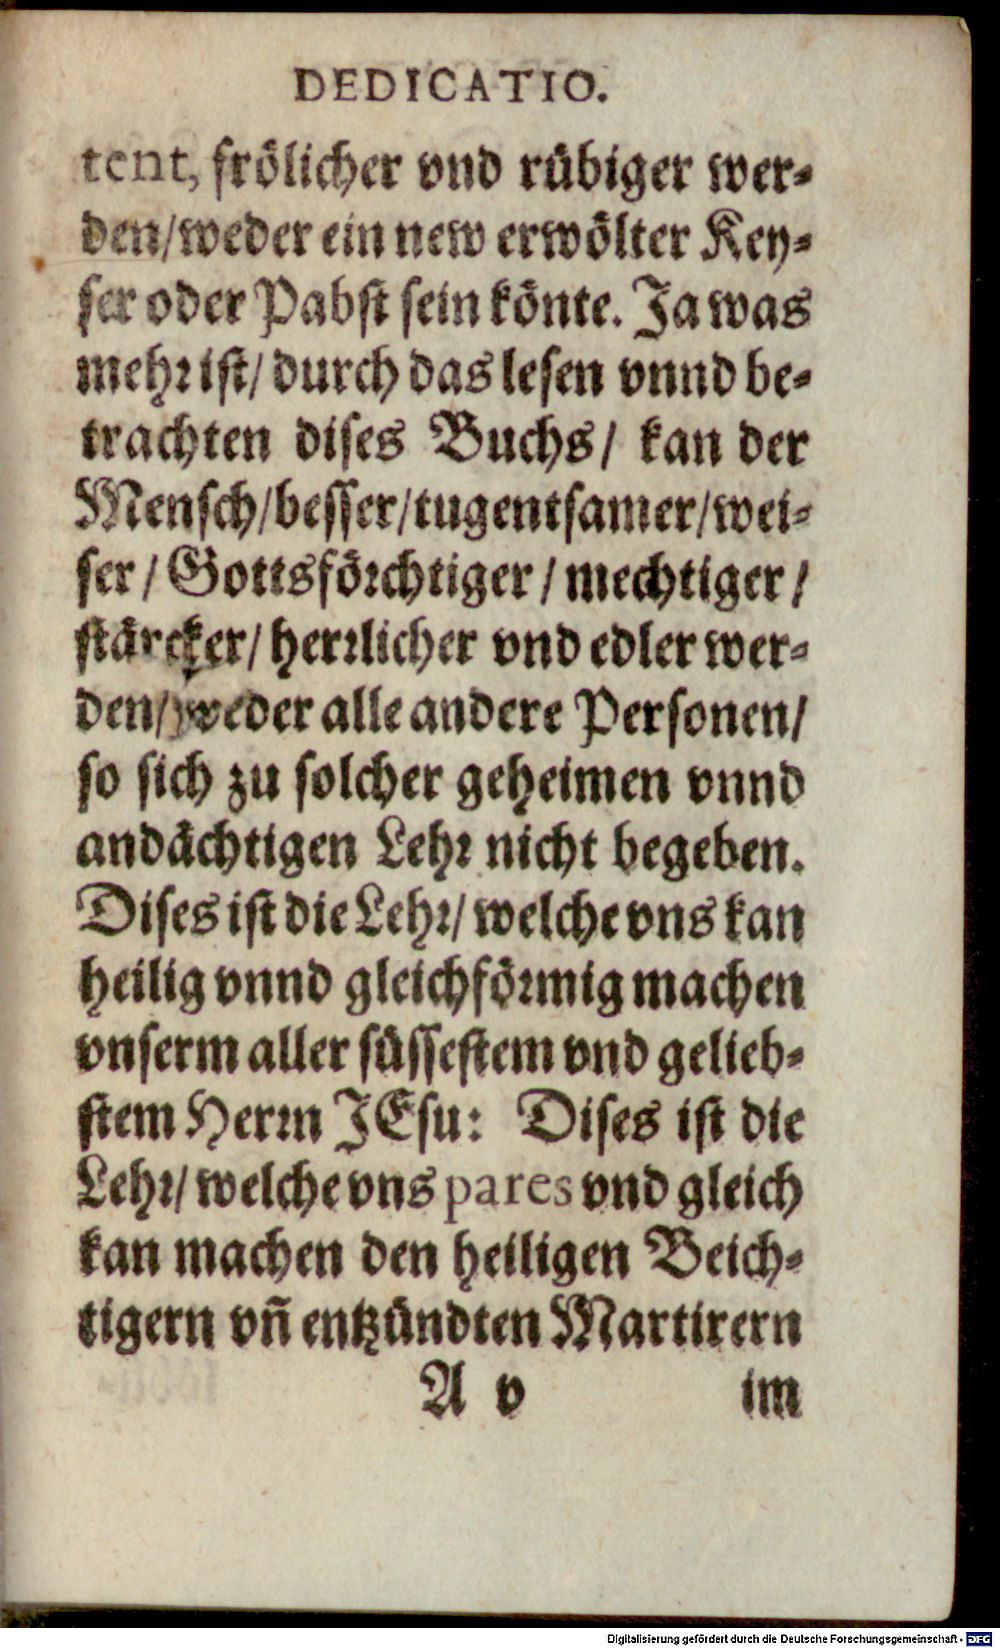 DEDICATIO.
tent, frölicher vnd rübiger wer⸗
den/weder ein new erwölter Key⸗
ser oder Pabst sein könte. Ja was
mehr ist/ durch das lesen vnnd be⸗
trachten dises Buchs/ kan der
Mensch/besser/tugentsamer/wei⸗
ser/ Gottsförchtiger/ mechtiger/
stärcker/ herrlicher vnd edler wer⸗
den/weder alle andere Personen/
so sich zu solcher geheimen vnnd
andächtigen Lehr nicht begeben.
Dises ist die Lehr/ welche vns kan
heilig vnnd gleichförmig machen
vnserm aller süssestem vnd gelieb⸗
stem Herrn JEsu: Dises ist die
Lehr/ welche vns pares vnd gleich
kan machen den heiligen Beich⸗
tigern vñ entzündten Martirern
A v im
Digitalisierung gefördert durch die Deutsche Forschungsgemeinschaft - DFG